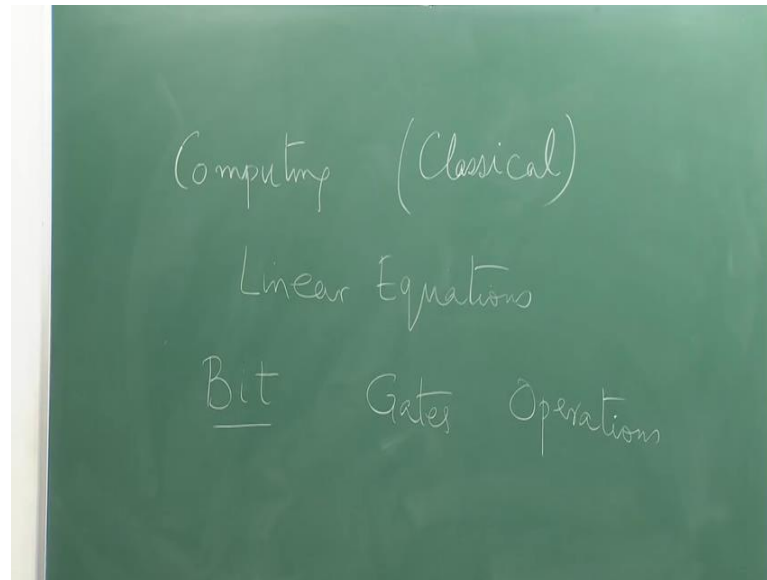 Computing (Classical)
Linear Equations
Bit Gates Operations